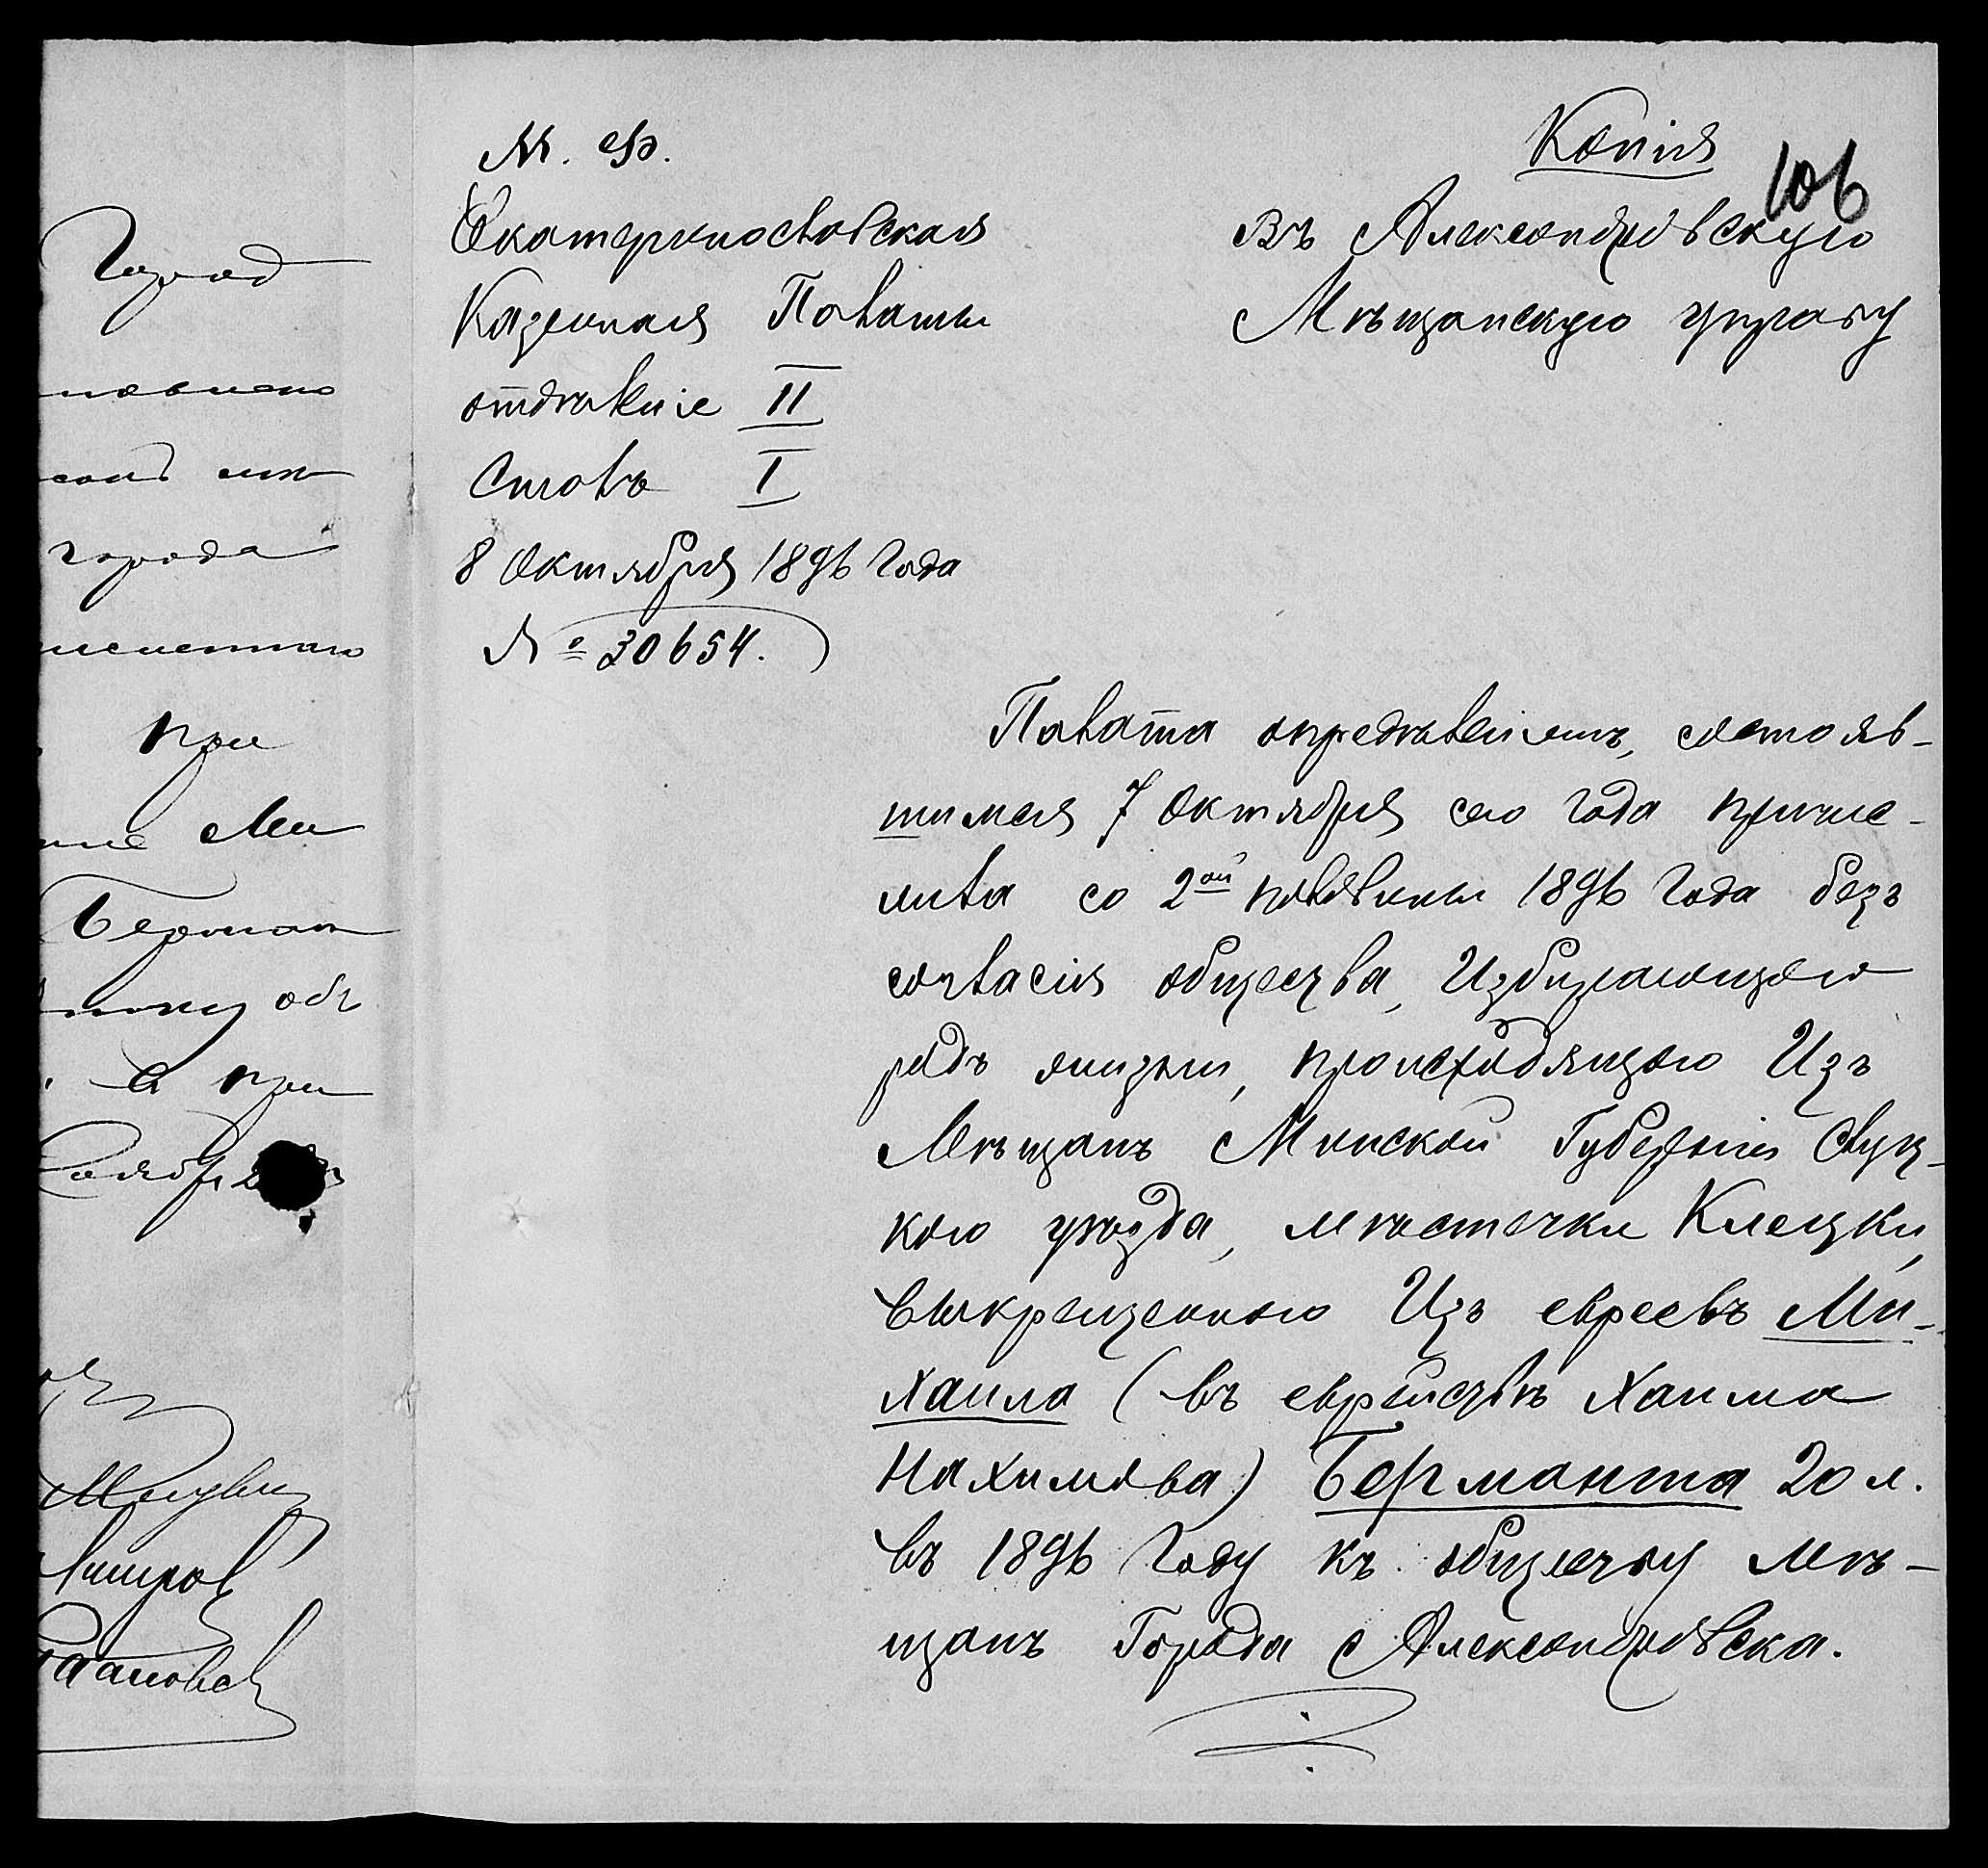 Копія
106
М. Ф.
Екатеринославская
Казенная Палаты
отдѣленіе II
Столъ I
8 Октября 1896 года
№ 30654.
Въ Александровскую
Мѣщанскую управу
Палата опредѣленіемъ, состояв-
шимся 7 Октября сего года причис-
лила со 2ой половины 1896 года безъ
согласія общества, Избирающаго
родъ жизни, происходящаго Изъ
Мѣщанъ Минской Губерніи Слуц-
каго уѣзда, мѣстечки Клецки,
выкрещеннаго Изъ евреевъ Ми-
хаила (въ еврействѣ Хаима
Нахимова) Берманта 20 л.
въ 1896 году къ обществу мѣ-
щанъ Города Александровска.
Город
города
при
Ми
Бермант
обг
а при